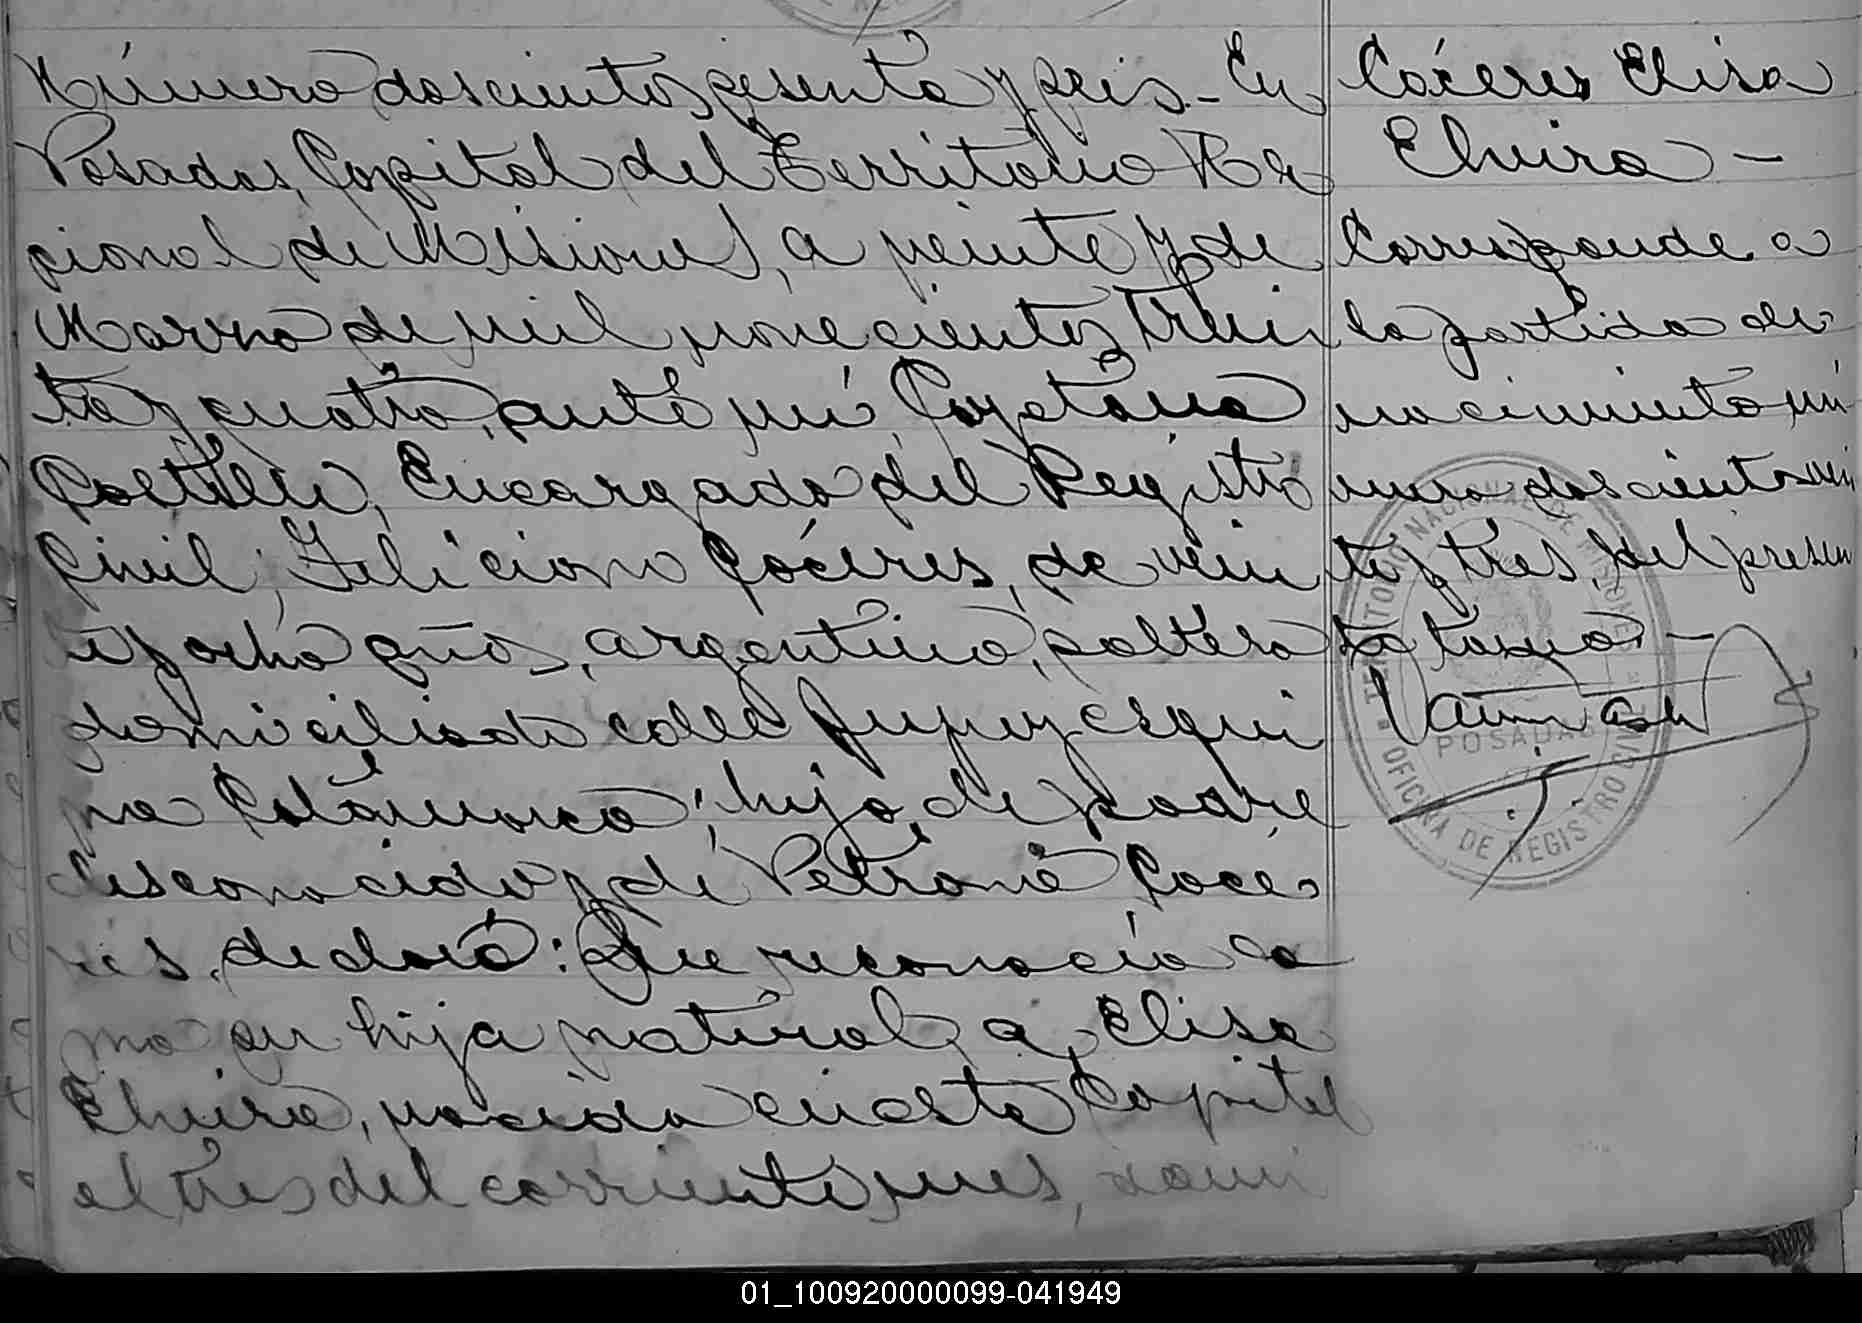 Número doscientos sesenta y seis - En
Posadas, Capital del Territorio Na
cional de Misiones, a veinte y de
Marzo de mil novecientos trein
ta y cuatro, ante mí, Cayetano
Castelli, Encargado del Registro
Civil, Feliciano Cáceres, de vein
ti y ocho años, argentino, soltero
domiciliado calle Jujuy esqui
na Catamarca; hijo de padre
desconocido y de Petrona Cáce
res, declaró: Que reconocía co
mo su hija natural a Elisa
Elvira, nacida en esta Capital
el tres del corriente mes, domi
Cáceres Elisa
Elvira -
Corresponde a
la partida de
nacimiento nú
mero doscientos vein
te y tres, del presen
te tomo -
TERRITORIO NACIONAL DE MISIONES
POSADAS
OFICINA DE REGISTRO CIVIL
01_100920000099-041949